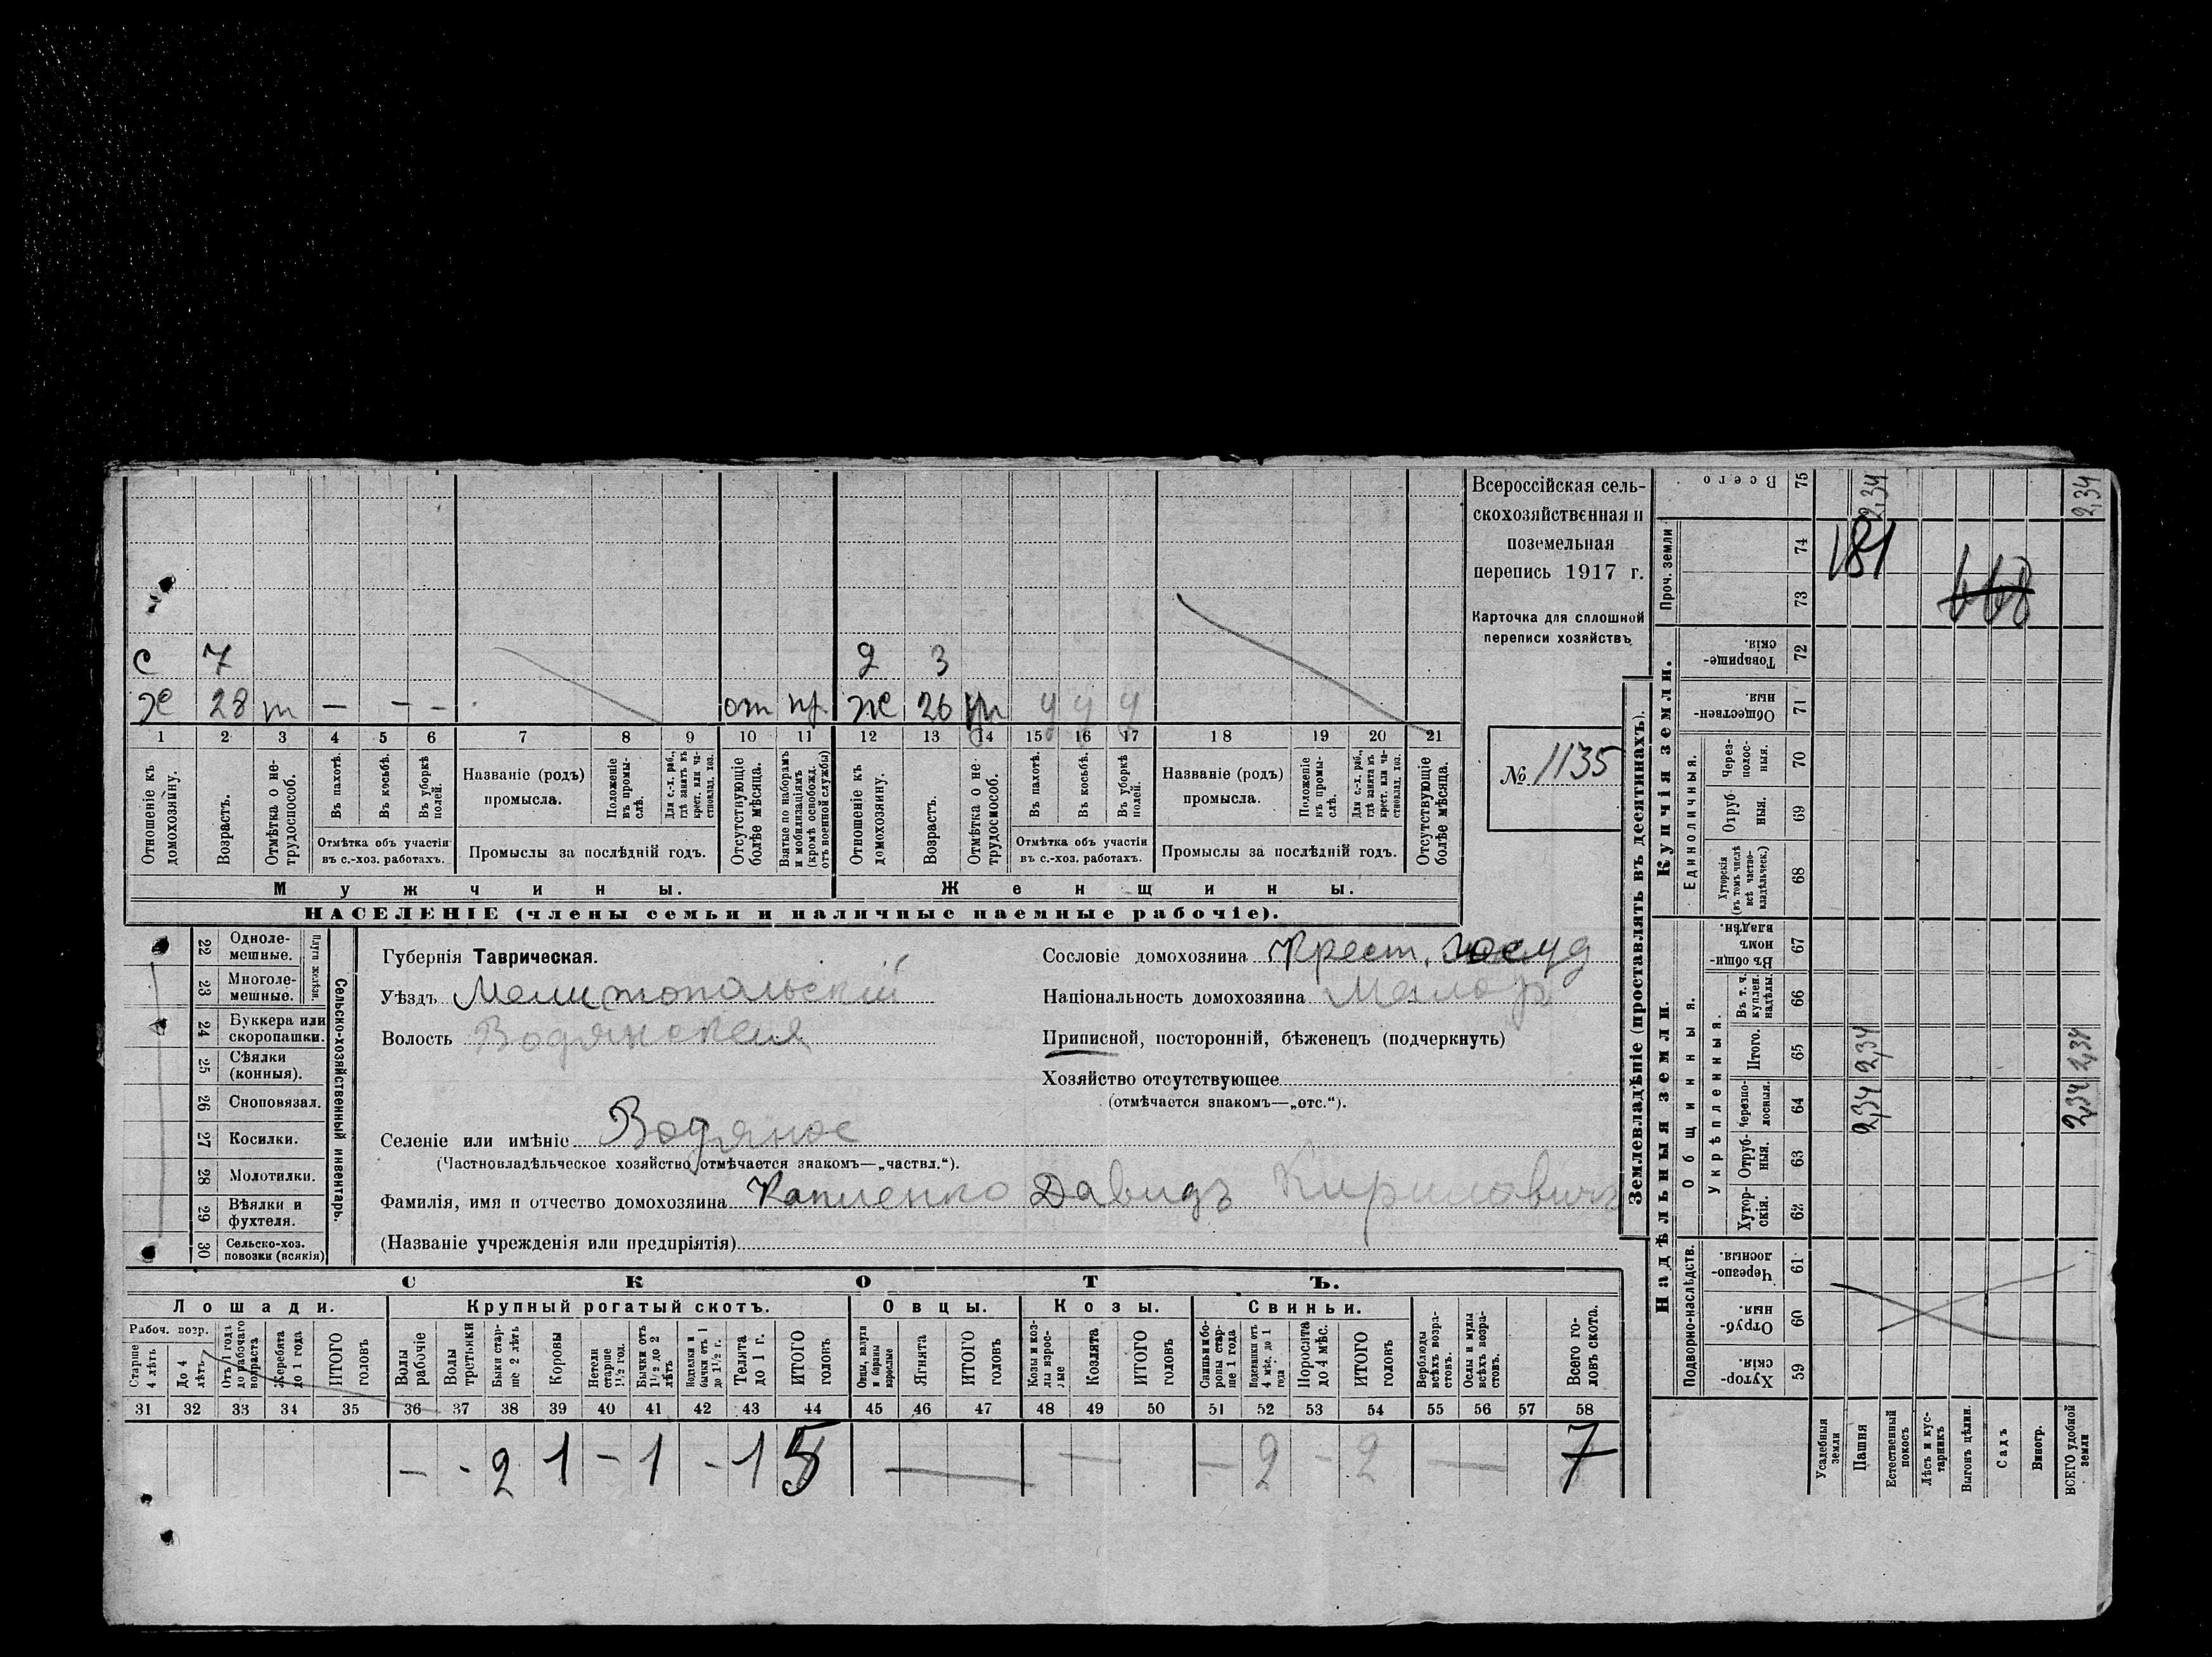 Всероссійская сель-
скохозяйственная и
поземельная
перепись 1917 г.
Карточка для сплошной
переписи хозяйствъ
№ 1135
с 7 д 3
ж 28 т — - - от пр ж 26 у у у
1 2 3 4 5 6 7 8 9 10 11 12 13 14 15 16 17 18 19 20 21
Отношеніе къ домохозяину.
Возрастъ.
Отмѣтка о не-трудоспособ.
Въ пахотѣ.
Въ косьбѣ.
Въ уборкѣ полей.
Отмѣтка объ участіи
въ с.-хоз. работахъ.
Названіе (родъ)
промысла.
Положеніе въ промы-слѣ.
Для с.-х. раб., гдѣ занятъ въ крест. или ча-стновлад. хоз.
Промыслы за послѣдній годъ.
Отсутствующіе болѣе мѣсяца.
Взятые по наборамъ и мобилизаціямъ (кромѣ освобожд. отъ военной службы)
Отношеніе къ домохозяину.
Возрастъ.
Отмѣтка о не-трудоспособ.
Въ пахотѣ.
Въ косьбѣ.
Въ уборкѣ полей.
Отмѣтка объ участіи
въ с.-хоз. работахъ.
Названіе (родъ)
промысла.
Положеніе въ промы-слѣ.
Для с.-х. раб., гдѣ занятъ въ крест. или ча-стновлад. хоз.
Промыслы за послѣдній годъ.
Отсутствующіе болѣе мѣсяца.
Мужчины. Женщины.
НАСЕЛЕНІЕ (члены семьи и наличные наемные рабочіе).
Сельско-хозяйственный инвентарь.
Плуги желѣзн.
22 Одноле-мешные.
23 Многоле-мешные.
24 Буккера или скоропашки.
25 Сѣялки (конныя).
26 Сноповязал.
27 Косилки.
28 Молотилки.
29 Вѣялки и фухтеля.
30 Сельско-хоз. повозки (всякія)
Губернія Таврическая.
Уѣздъ Мелитопольскій
Волость Водянская
Селеніе или имѣніе Водяное
(Частновладѣльческое хозяйство отмѣчается знакомъ—„частвл.“).
Фамилія, имя и отчество домохозяина Капленко Давидъ Кириловичъ
(Названіе учрежденія или предпріятія)
Сословіе домохозяина Крест. госуд
Національность домохозяина Малор
Приписной, посторонній, бѣженецъ (подчеркнуть)
Хозяйство отсутствующее
(отмѣчается знакомъ—„отс.“).
СКОТЪ.
Лошади. Крупный рогатый скотъ. Овцы. Козы. Свиньи.
Рабоч. возр.
Старше 4 лѣтъ
До 4 лѣтъ
Отъ 1 года до рабочаго возраста
Жеребята до 1 года
ИТОГО головъ
Волы рабочіе
Волы третьяки
Быки стар-ше 2 лѣтъ
Коровы
Нетели старше 1½ год.
Бычки отъ 1½ до 2 лѣтъ
Подтелки и бычки отъ 1 до 1½ г.
Телята до 1 г.
ИТОГО головъ
Овцы, валухи и бараны взрослые
Ягнята
ИТОГО головъ
Козы и коз-лы взрос-лые
Козлята
ИТОГО головъ
Свиньи и бо-ровы стар-ше 1 года
Подсвинки отъ 4 мѣс. до 1 года
Поросята до 4 мѣс.
ИТОГО головъ
Верблюды всѣхъ возра-стовъ.
Ослы и мулы всѣхъ возра-стовъ.
Всего го-ловъ скота.
31 32 33 34 35 36 37 38 39 40 41 42 43 44 45 46 47 48 49 50 51 52 53 54 55 56 57 58
— - 2 1 - 1 - 1 5 — — — 2 - 2 — 7
Землевладѣніе (проставлять въ десятинахъ).
Надѣльныя земли. Купчія земли. Проч. земли
Подворно-наслѣдств.
Общинныя.
Укрѣпленныя.
Единоличныя.
59 Хутор-скія.
60 Отруб-ныя.
61 Черезпо-лосныя.
62 Хутор-скія.
63 Отруб-ныя.
64 Черезпо-лосныя.
65 Итого.
66 Въ т. ч. куплен. надѣлы
67 Въ общи-номъ владѣн.
68 Хуторскія (въ томъ числѣ всѣ частно-владѣльческ.)
69 Отруб-ныя.
70 Через-полос-ныя.
71 Обществен-ныя.
72 Товарище-скія.
73
74
75 Всего
Усадебныя земли
Пашня 2,34 2,34 2,34
Естественный покосъ
Лѣсъ и кус-тарникъ
Выгонъ цѣлин.
Садъ
Виногр.
ВСЕГО удобной земли 2,34 2,34 2,34
181
668